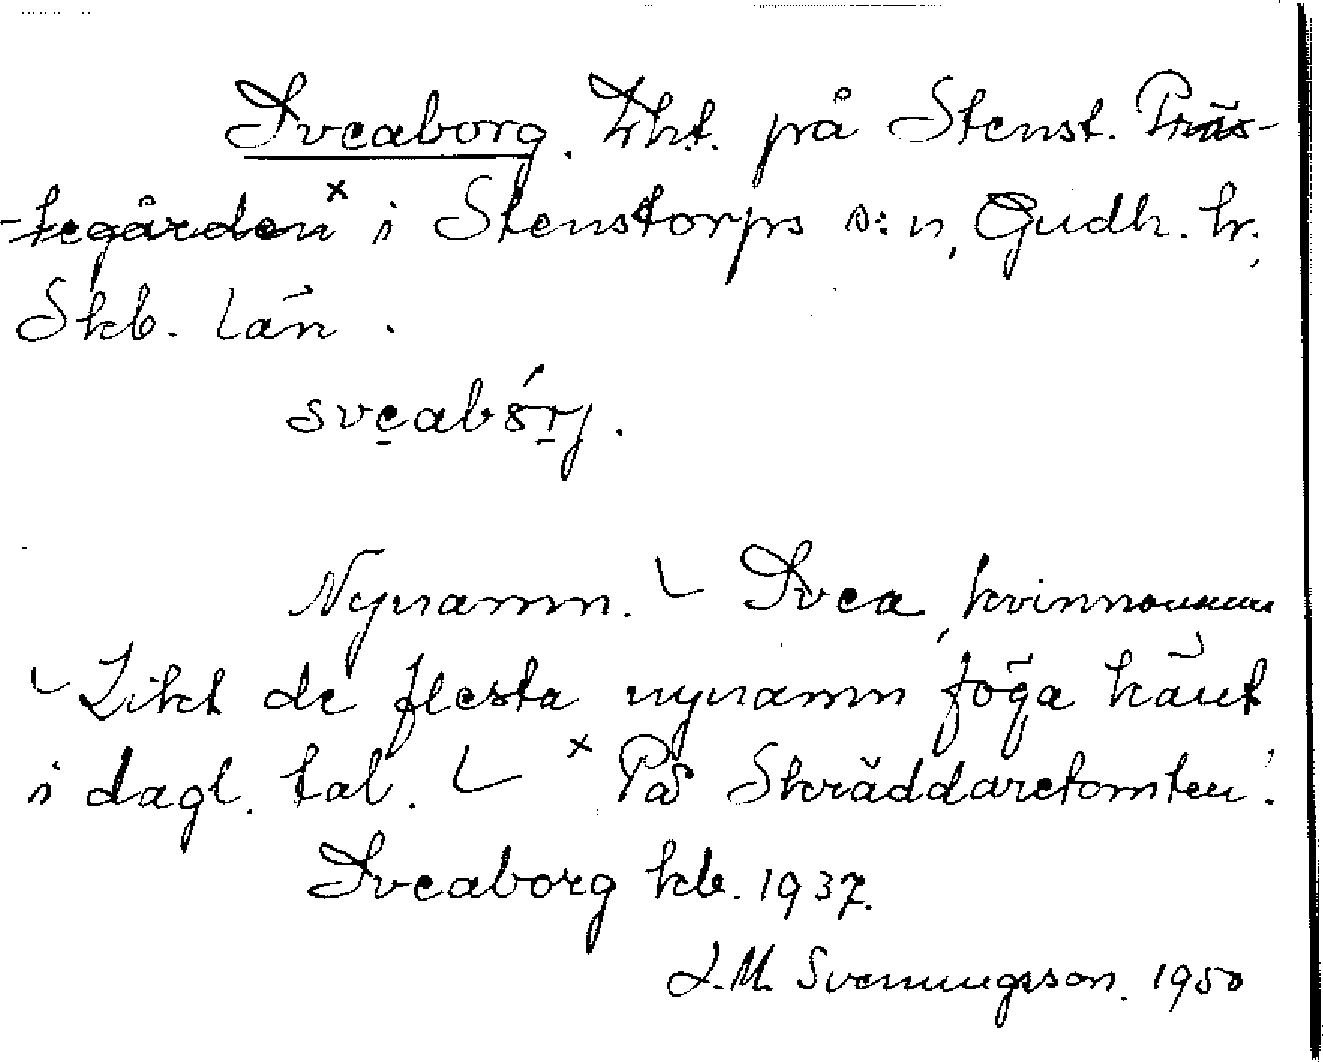 Sveaborg. Lht. på Stenst. Präs-
-tegården x i Stenstorps s:n, Gudh. hr.,
Skb. län.
sveabórj.
Nynamn. – Svea, kvinnonamn
– Likt de flesta nynamn föga känt
i dagl. tal. – x På Skräddaretomten.
Sveaborg kb. 1937.
J.M. Svenningsson. 1950